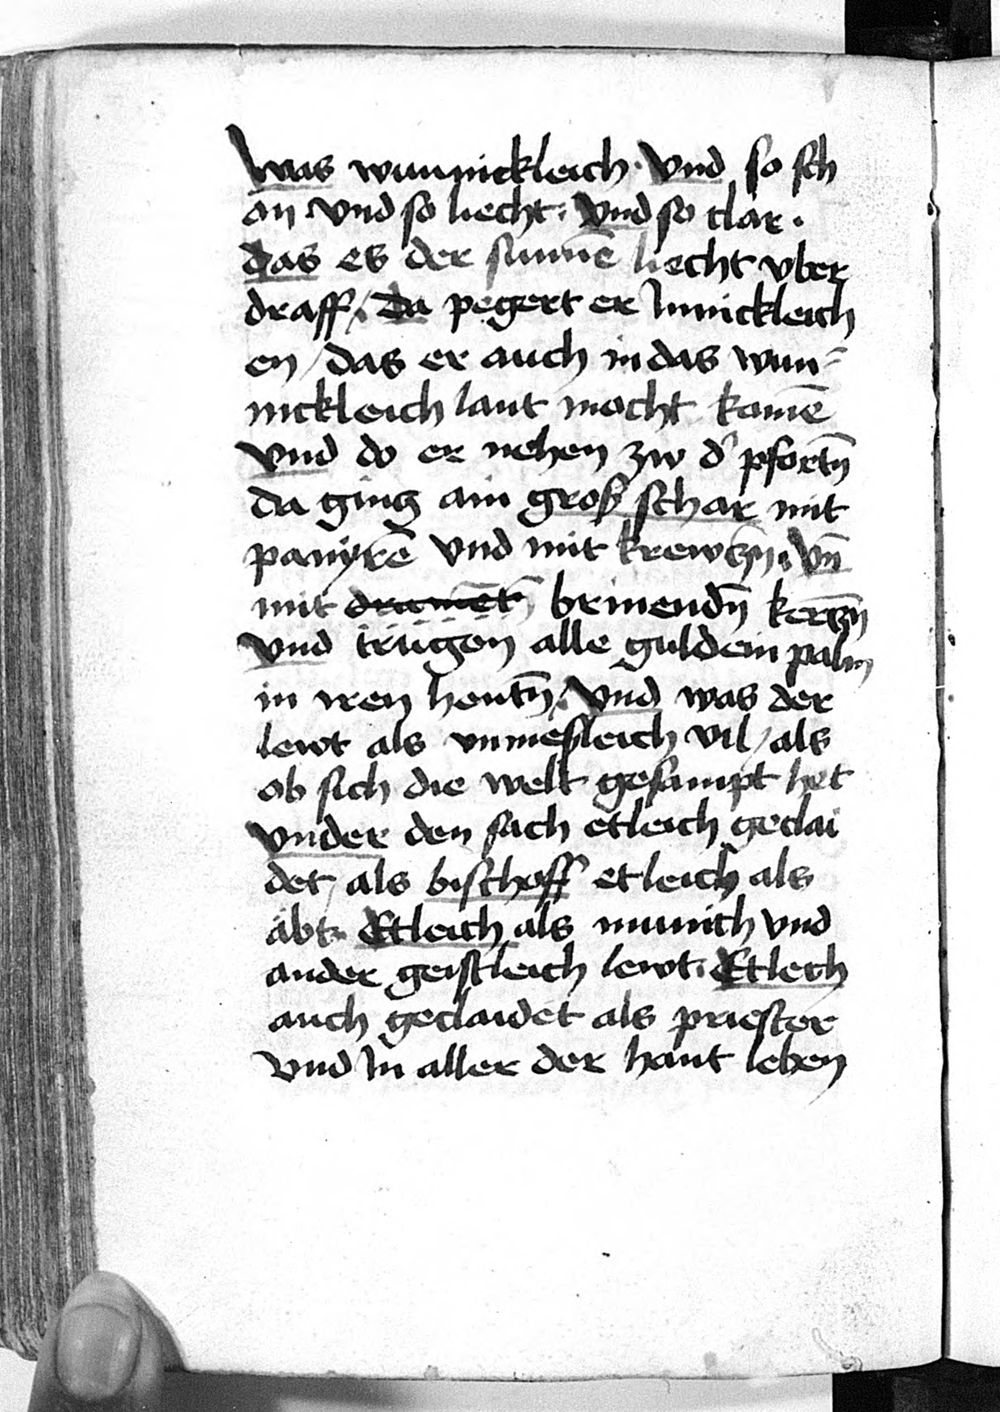 Was wunnickleich · Vnd so sch
an Vnd so liecht · Vnd so clar ·
das es der sunnē liecht vber
draff / Da pegert er Innickleich
en / das er auch in das wun⸗
nickleich laut mocht komē
Vnd do er nehen zw d' pfortn̄
da ging ain groß schar mit
panyrē vnd mit krewczn̄ · Vn̄
mit brinendn̄ kerczn̄
Vnd trugen alle guldein palm
in iren hentn̄ / Vnd was der
lewt als vnmesleich vil / als
ob sich die welt gesampt het
Vnder den sach etleich geclai
det / als bischoff etleich als
äbt · Etleich als munich vnd
ander geistleich lewt · Etlech
auch geclaidet als priester
Vnd In aller der haut leben